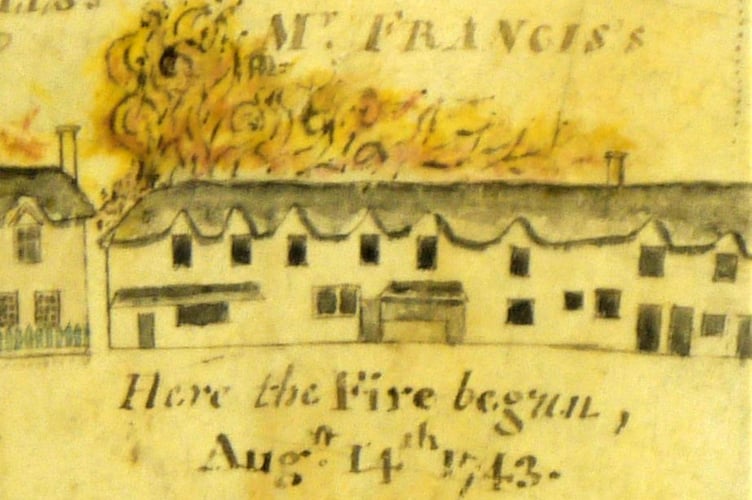 Mr. FRANCIS's
Here the Fire begun,
Augst. 14th 1743.